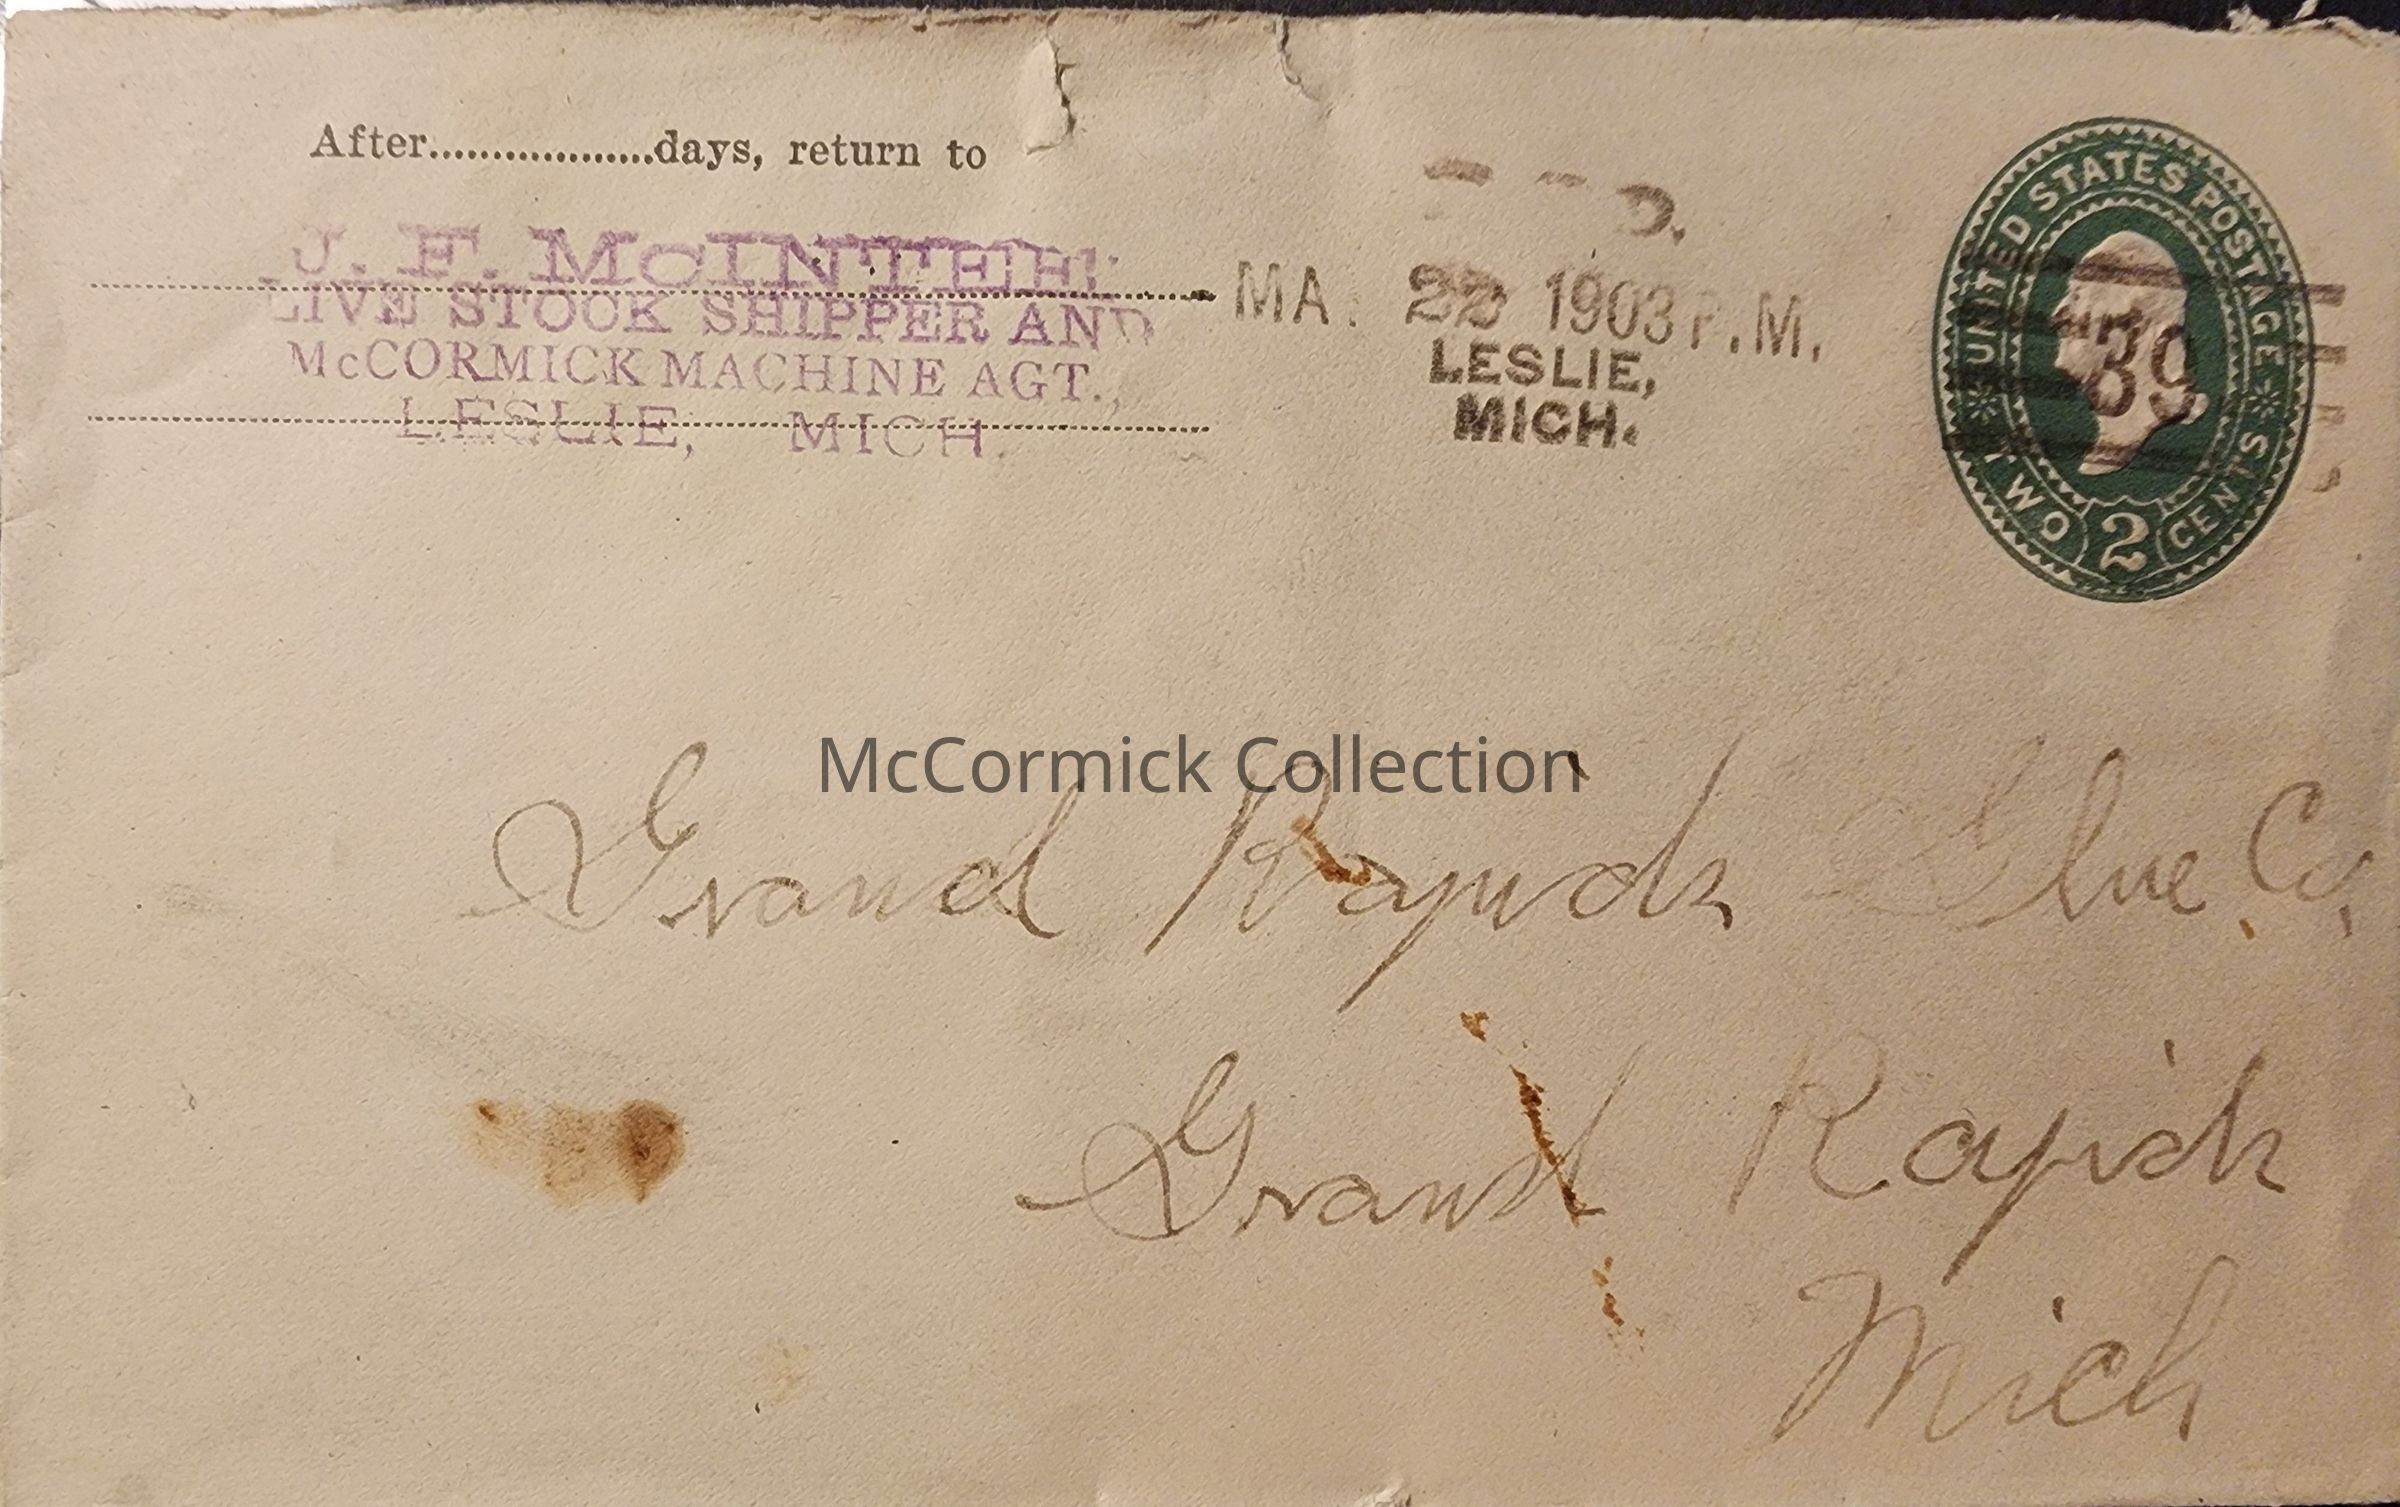 After..................days, return to
J. F. McINTEE,
LIVE STOCK SHIPPER AND
McCORMICK MACHINE AGT.,
LESLIE, MICH.
D.
MA. 22 1903 P.M.
LESLIE,
MICH.
UNITED STATES POSTAGE
TWO 2 CENTS
McCormick Collection
Grand Rapids Glue Co.
Grand Rapids
Mich